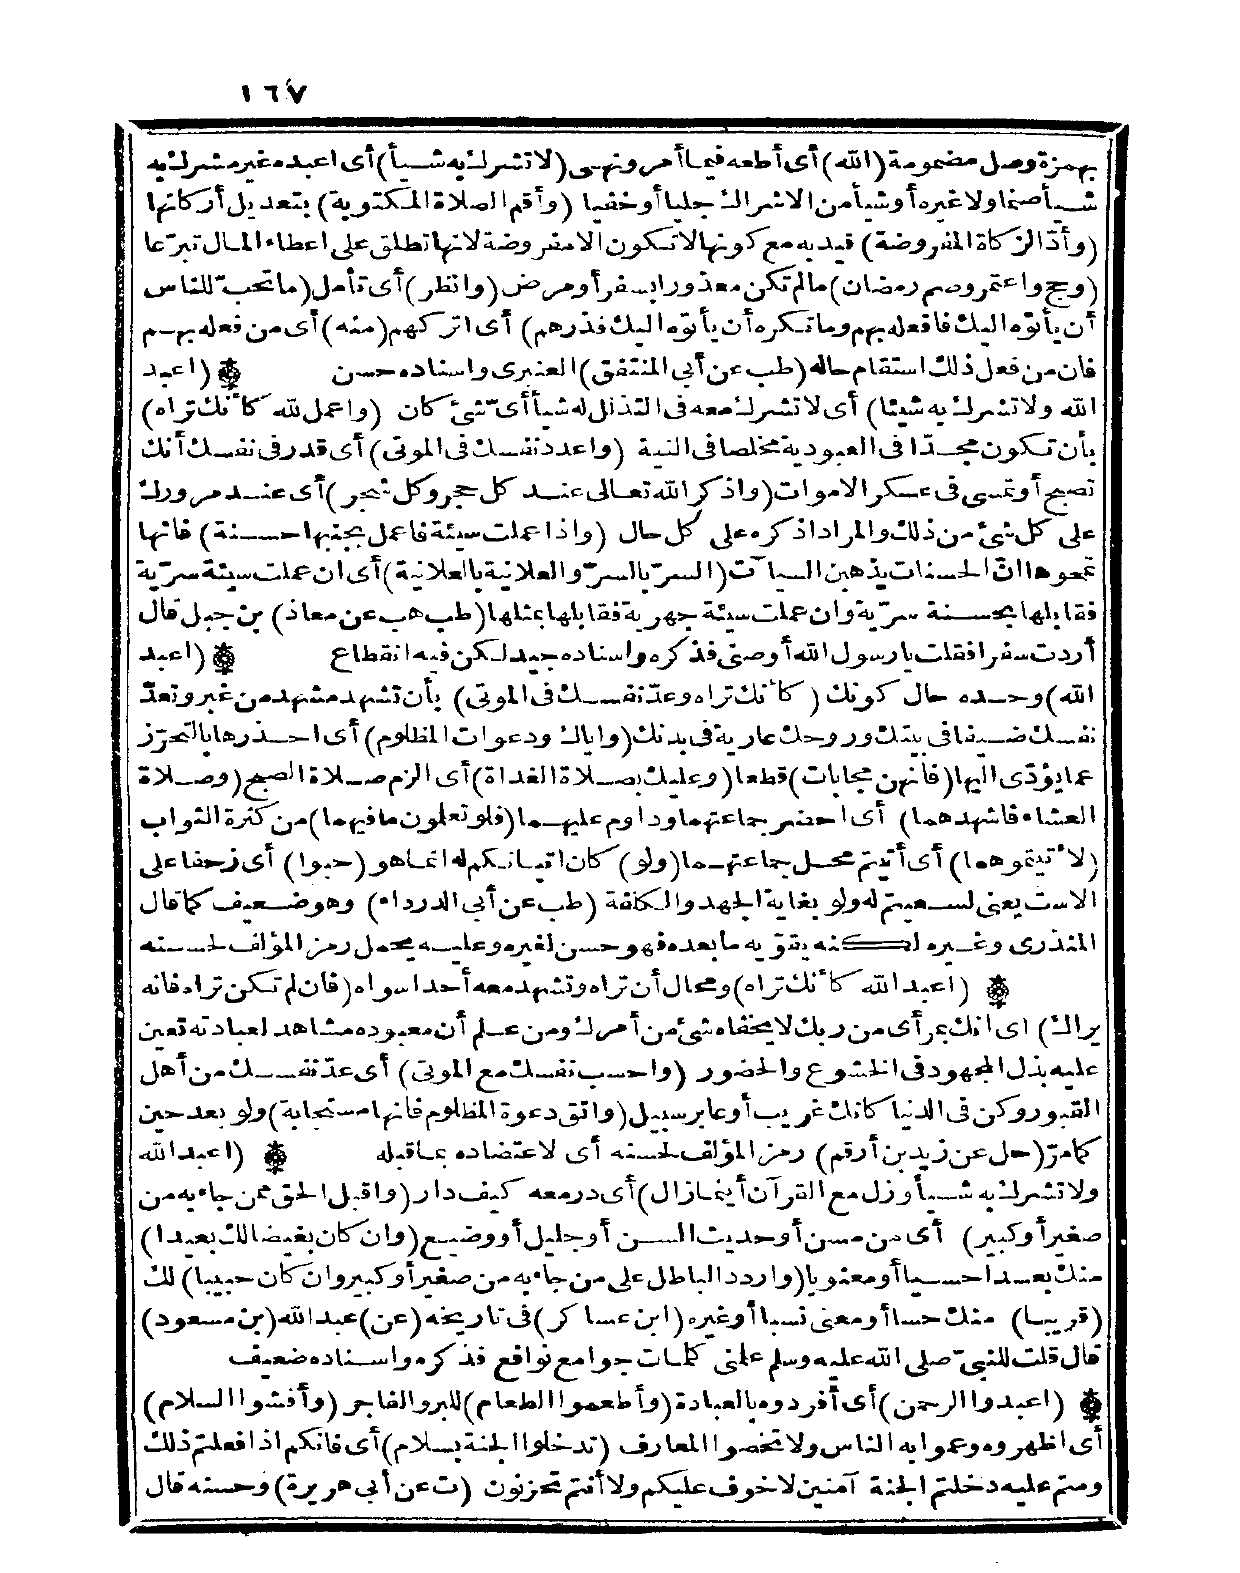 ١٦٧
بهمزة وصل مضمومة (الله) أى أطعه فيما أمر ونهى (لا تشرك به شيأ) أى اعبده غير مشرك به
شيأ صنما ولا غيره أو شيأ من الاشراك جليا أو خفيا (وأقم الصلاة المكتوبة) بتعديل أركانها
(وأد الزكاة المفروضة) قيد به مع كونها لا تكون الا مفروضة لانها تطلق على اعطاء المال تبرّعا
(وحج واعتمر وصم رمضان) مالم تكن معذورا بسفر أو مرض (وانظر) أى تأمل (ما تحب للناس
أن يأتوه اليك فافعله بهم وما تكره أن يأتوه اليك فذرهم) أى اتركهم (منه) أى من فعله بهم
فان من فعل ذلك استقام حاله (طب عن أبى المنتفق) العنبرى واسناده حسن (اعبد
الله ولا تشرك به شيئا) أى لا تشرك معه فى التذلل له شيأ أىّ شئ كان (واعمل لله كأنك تراه)
بأن تكون مجدّا فى العبودية مخلصا فى النية (واعدد نفسك فى الموتى) أى قدر فى نفسك أنك
تصبح أو تمسى فى عسكر الاموات (واذكر الله تعالى عند كل حجر وكل شجر) أى عند مرورك
على كل شئ من ذلك والمراد اذكره على كل حال (واذا عملت سيئة فاعمل بجنبها حسنة) فانها
تمحوها انّ الحسنات يذهبن السيآت (السرّ بالسرّ والعلانية بالعلانية) أى ان عملت سيئة سرّية
فقابلها بحسنة سرّية وان عملت سيئة جهرية فقابلها بمثلها (طب هب عن معاذ) بن جبل قال
أردت سفرا فقلت يا رسول الله أوصنى فذكره واسناده جيد لكن فيه انقطاع (اعبد
الله) وحده حال كونك (كأنك تراه وعدّ نفسك فى الموتى) بأن تشهد مشهد من غبر وتعدّ
نفسك ضيفا فى بيتك وروحك عارية فى بدنك (واياك ودعوات المظلوم) أى احذرها بالتحرّز
عما يؤدّى اليها (فانهن مجابات) قطعا (وعليك بصلاة الغداة) أى الزم صلاة الصبح (وصلاة
العشاء فاشهدهما) أى احضر جماعتهما وداوم عليهما (فلو تعلون ما فيهما) من كثرة الثواب
(لأتيتموهما) أى أتيتم محل جماعتهما (ولو) كان اتيانكم له انما هو (حبوا) أى زحفا على
الاست يعنى لسعيتم له ولو بغاية الجهد والكلفة (طب عن أبى الدرداء) وهو ضعيف كما قال
المنذرى وغيره لكنه يقوّيه ما بعده فهو حسن لغيره وعليه يحمل رمز المؤلف لحسنه
(اعبد الله كأنك تراه) ومحال أن تراه وتشهد معه أحدا سواه (فان لم تكن تراه فانه
يراك) اى انك بمرأى من ربك لا يخفاه شئ من أمرك ومن علم أن معبوده مشاهد لعبادته تعين
عليه بذل المجهود فى الخشوع والحضور (واحسب نفسك مع الموتى) أى عدّ نفسك من أهل
القبور وكن فى الدنيا كانك غريب أو عابر سبيل (واتق دعوة المظلوم فانها مستجابة) ولو بعد حين
كما مرّ (حل عن زيد بن أرقم) رمز المؤلف لحسنه أى لاعتضاده بما قبله (اعبد الله
ولا تشرك به شيأ وزل مع القرآن أينما زال) أى در معه كيف دار (واقبل الحق ممن جاء به من
صغير أو كبير) أى من مسن أو حديث السن أو جليل أو وضيع (وان كان بغيضا لك بعيدا)
منك بعدا حسيا أو معنويا (واردد الباطل على من جاء به من صغير أو كبير وان كان حبيبا) لك
(قريبا) منك حسا أو معنى نسبا أو غيره (ابن عساكر) فى تاريخه (عن) عبد الله (بن مسعود)
قال قلت للنبىّ صلى الله عليه وسلم علمنى كلمات جوامع نوافع فذكره واسناده ضعيف
(اعبدوا الرحمن) أى أفردوه بالعبادة (وأطعموا الطعام) للبر والفاجر (وأفشوا السلام)
أى اظهروه وعموا به الناس ولا تخصوا المعارف (تدخلوا الجنة بسلام) أى فانكم اذا فعلتم ذلك
ومتم عليه دخلتم الجنة آمنين لا خوف عليكم ولا أنتم تحزنون (ت عن أبى هريرة) وحسنه قال